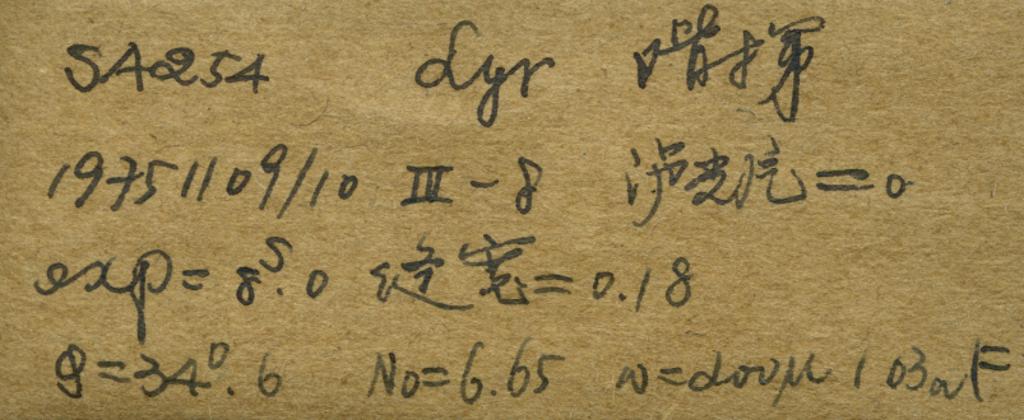 SA254 αlyr 阶梯
19751109/10 III-8 滤光片=0
exp=8ˢ.0 缝宽=0.18
θ=34⁰.6 N₀=6.65 w=200μ 103a